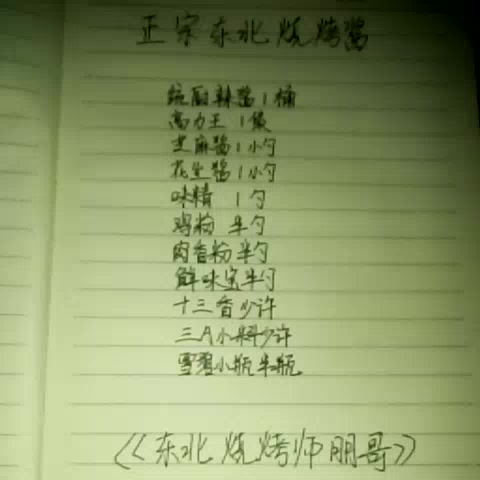 正宗东北烧烤酱
蒜蓉辣酱1桶
高力王 1袋
芝麻酱1小勺
花生酱1小勺
味精 1勺
鸡粉 半勺
肉香粉半勺
鲜味宝半勺
十三香少许
三A小料少许
雪碧小瓶半瓶
《东北烧烤师朋哥》